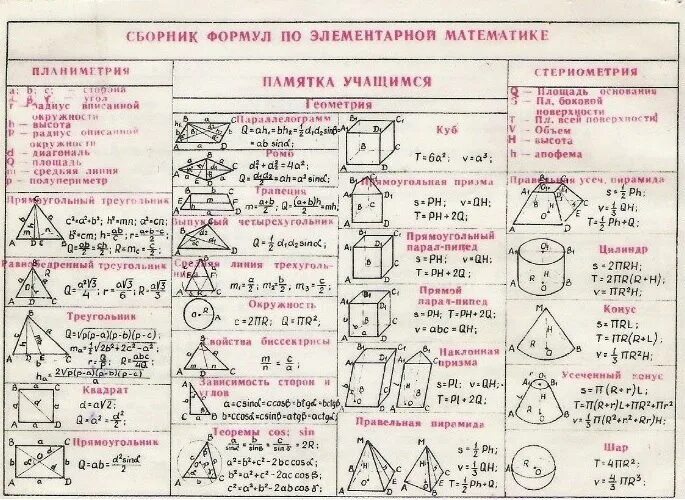 СБОРНИК ФОРМУЛ ПО ЭЛЕМЕНТАРНОЙ МАТЕМАТИКЕ
ПЛАНИМЕТРИЯ
a; b; c; — сторона
угол
r — радиус вписанной
окружности
h — высота
R — радиус описанной
окружности
d — диагональ
Q — площадь
m — средняя линия
p — полупериметр
Прямоугольный треугольник
c²=a²+b²; h²=mn; a²=cn;
b²=cm; h=ab/c; r=(a+b-c)/2;
Q=ab/2=ch/2; R=m_c=c/2;
Равнобедренный треугольник
Q=a²√3/4; r=a√3/6; R=a√3/3
Треугольник
Q=√p(p-a)(p-b)(p-c)
m_a=1/2√2b²+2c²-a²;
r=Q/p; R=abc/4Q
h_a=2√p(p-a)(p-b)(p-c)/a
Квадрат
d=a√2;
Q=a²=d²/2;
Прямоугольник
Q=ab=d²sinα/2
ПАМЯТКА УЧАЩИМСЯ
Геометрия
Параллелограмм
Q=ah₁=bh₂=1/2d₁d₂sinφ=
=ab sinα;
Ромб
d₁²+d₂²=4a²;
Q=d₁d₂/2=ah=a²sinα;
Трапеция
m=(a+b)/2; Q=(a+b)h/2=mh;
Выпуклый четырехугольник
Q=1/2d₁d₂sinα;
Средняя линия треуголь-
ника
m₁=a/2; m₂=b/2; m₃=c/2;
Окружность
c=2ΠR; Q=ΠR²;
Свойства биссектрисы
m/n=c/a;
Зависимость сторон и
углов
a=c sinα=c cosβ=b tgα=b ctgβ
b=c cosα=c sinβ=a tgβ=a ctgα;
Теоремы cos; sin
a/sinα=b/sinβ=c/sinδ=2R;
a²=b²+c²-2bc cosα;
b²=a²+c²-2ac cosβ;
c²=a²+b²-2ab cosδ;
Куб
T=6a²; v=a³;
Прямоугольная призма
s=PH; v=QH;
T=PH+2Q;
Прямоугольный
парал-пипед
s=PH; v=QH;
T=PH+2Q;
Прямой
парал-пипед
s=PH; T=PH+2Q;
v=abc=QH;
Наклонная
призма
s=PL; v=QH;
T=PL+2Q;
Правельная пирамида
s=1/2Ph;
v=1/3QH;
T=1/2Ph+Q;
СТЕРИОМЕТРИЯ
Q — Площадь основания
S — Пл. боковой
поверхности
T — Пл. всей поверхности
V — Объем
H — высота
h — апофема
Правильная усеч. пирамида
Цилиндр
s=2ΠRH;
T=2ΠR(R+H);
v=ΠR²H;
Конус
s=ΠRL;
T=ΠR(R+L);
v=1/3ΠR²H;
Усеченный конус
s=Π(R+r)L;
T=Π(R+r)L+ΠR²+Πr²
v=1/3Π(R²+r²+Rr)H;
Шар
T=4ΠR²;
v=4/3ΠR³;